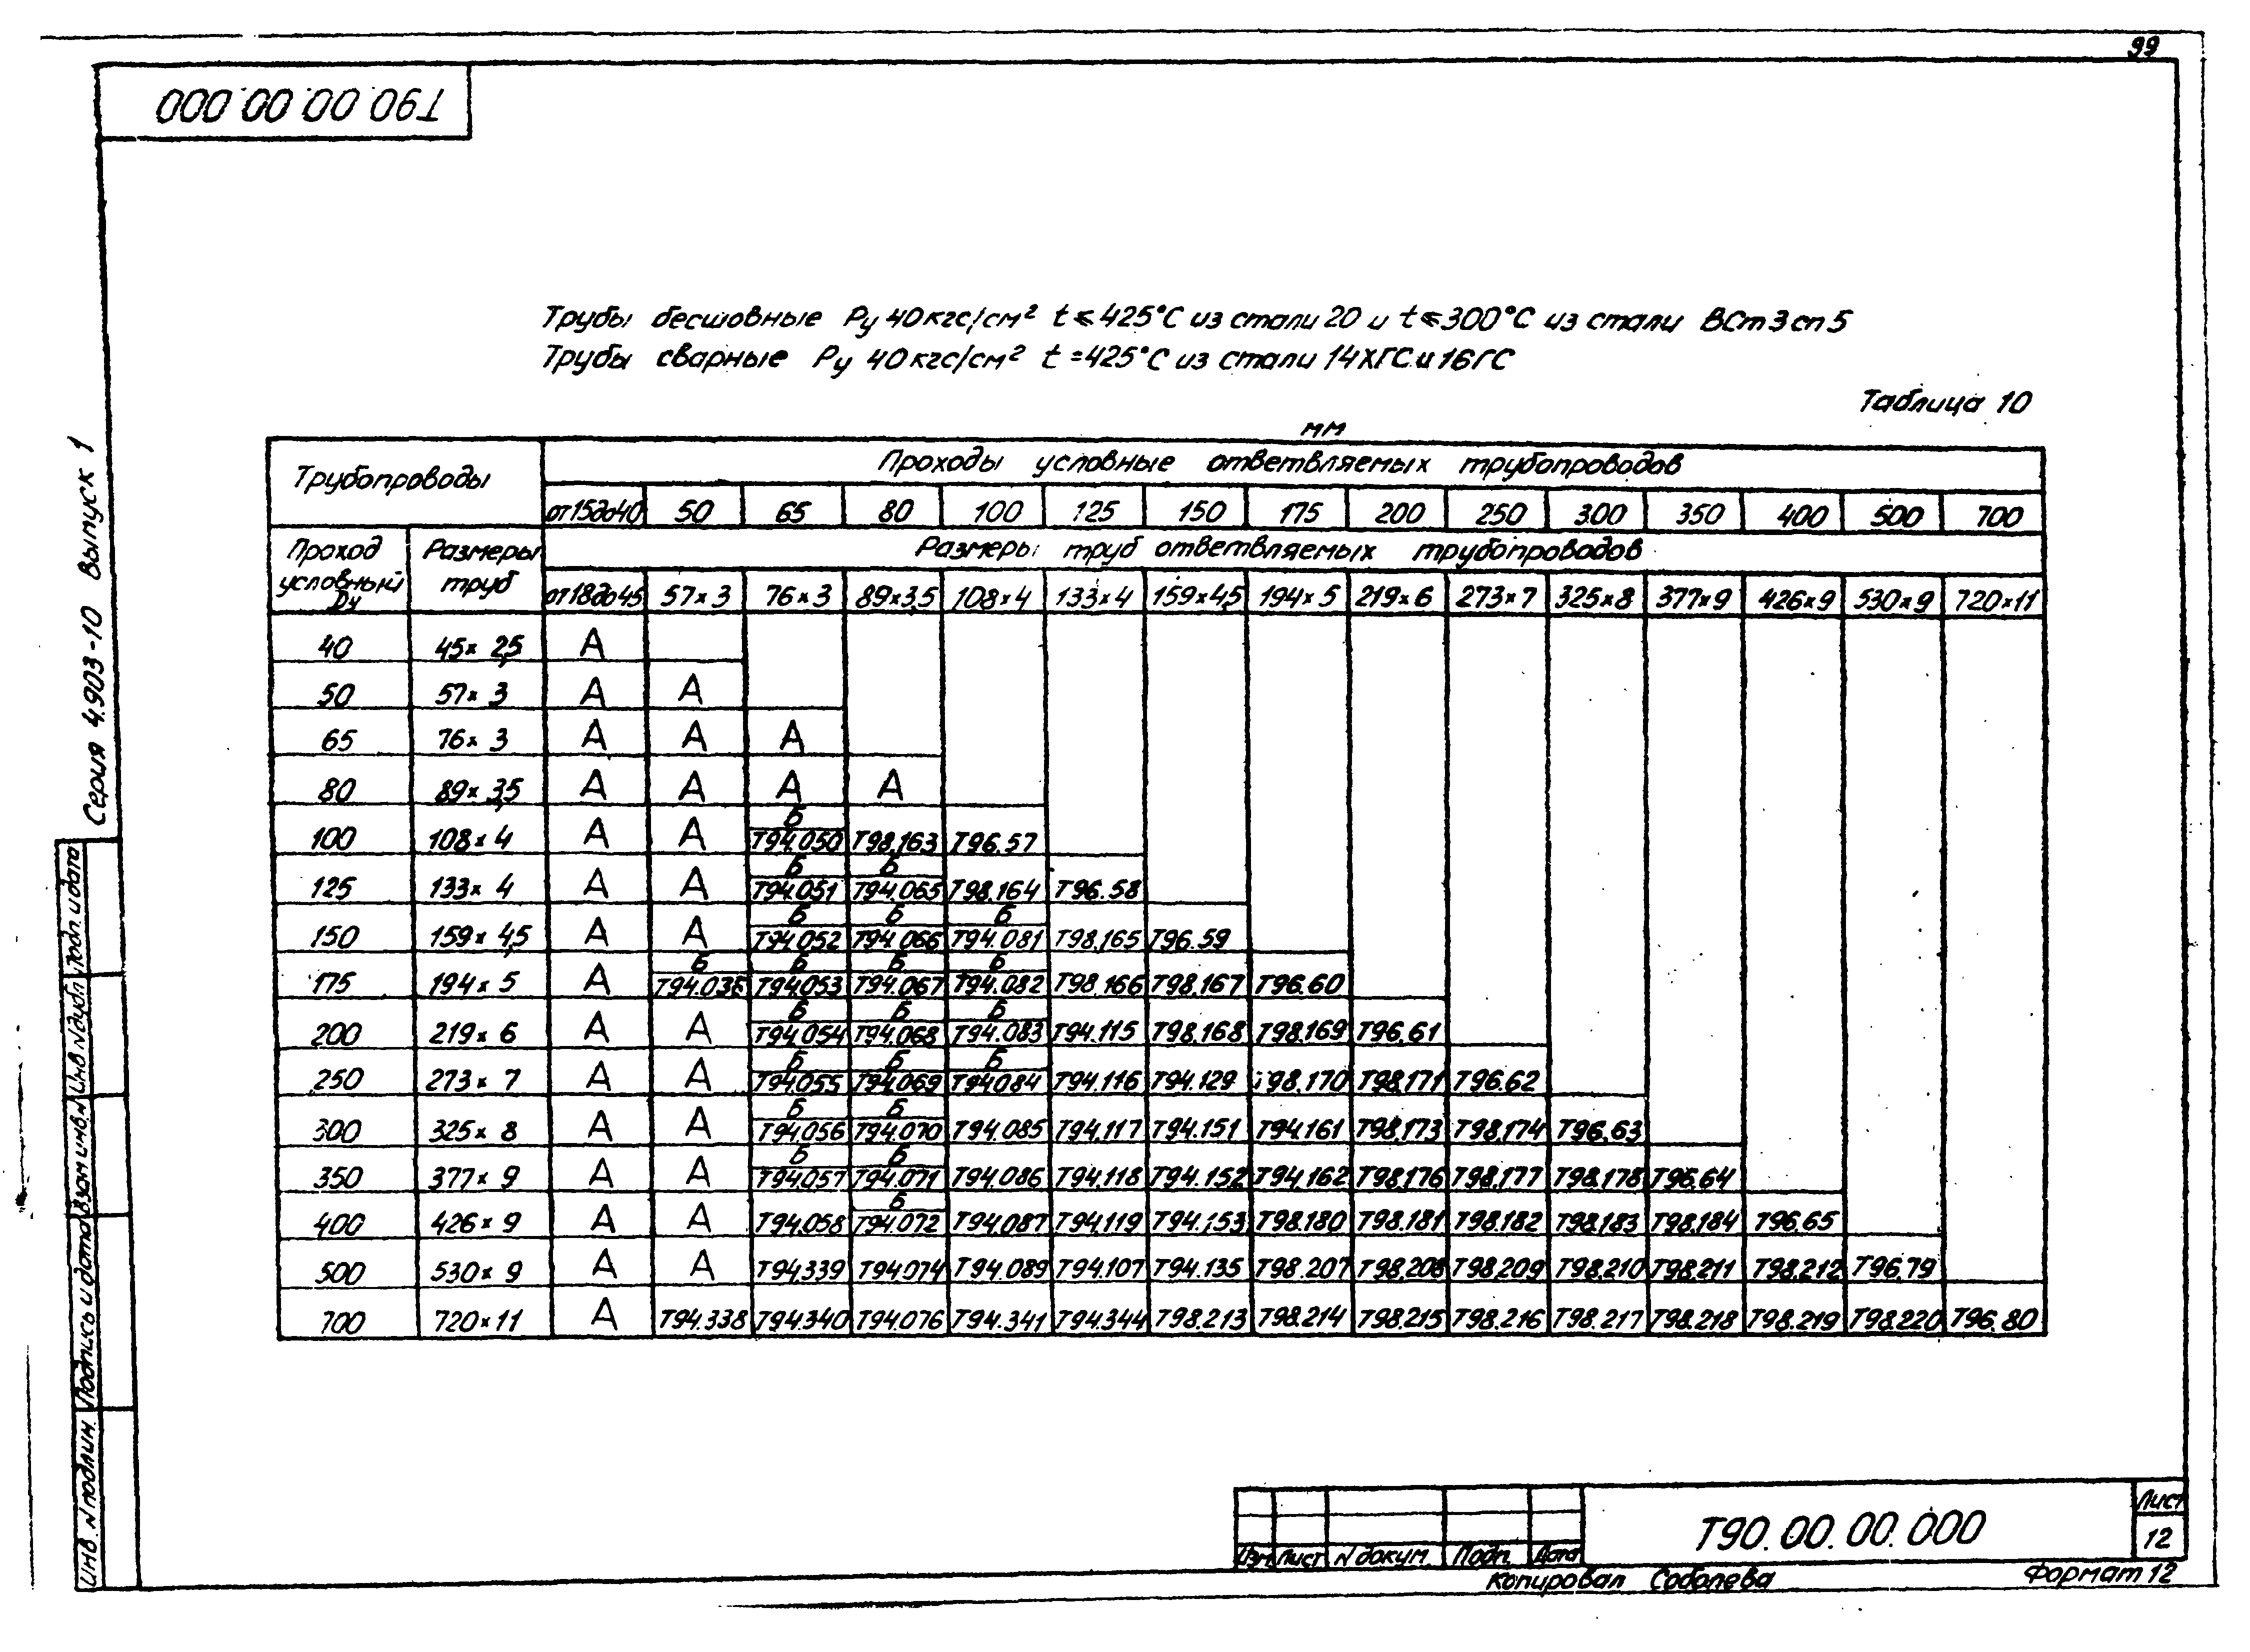 99
Т90.00.00.000
Серия 4.903-10 Выпуск 1
Трубы бесшовные Ру 40кгс/см² t ⩽ 425°С из стали 20 и t ⩽ 300°С из стали ВСт3сп5
Трубы сварные Ру 40кгс/см² t = 425°С из стали 14ХГС и 16ГС
Таблица 10
мм
Трубопроводы Проходы условные ответвляемых трубопроводов
от15до40 50 65 80 100 125 150 175 200 250 300 350 400 500 700
Проход условный Dу Размеры труб Размеры труб ответвляемых трубопроводов
от18до45 57×3 76×3 89×3,5 108×4 133×4 159×4,5 194×5 219×6 273×7 325×8 377×9 426×9 530×9 720×11
40 45×2,5 А
50 57×3 А А
65 76×3 А А А
80 89×3,5 А А А А
100 108×4 А А Б Т94.050 Т98.163 Т96.57
125 133×4 А А Б Т94.051 Б Т94.065 Т98.164 Т96.58
150 159×4,5 А А Б Т94.052 Б Т94.066 Б Т94.081 Т98.165 Т96.59
175 194×5 А Б Б Т94.053 Б Т94.067 Б Т94.082 Т98.166 Т98.167 Т96.60
200 219×6 А А Б Т94.054 Б Т94.068 Б Т94.083 Т94.115 Т98.168 Т98.169 Т96.61
250 273×7 А А Б Т94.055 Б Т94.069 Б Т94.084 Т94.116 Т94.129 Т98.170 Т98.171 Т96.62
300 325×8 А А Б Т94.056 Б Т94.070 Т94.085 Т94.117 Т94.151 Т94.161 Т98.173 Т98.174 Т96.63
350 377×9 А А Б Т94.057 Б Т94.071 Т94.086 Т94.118 Т94.152 Т94.162 Т98.176 Т98.177 Т98.178 Т96.64
400 426×9 А А Т94.058 Б Т94.072 Т94.087 Т94.119 Т94.153 Т98.180 Т98.181 Т98.182 Т98.183 Т98.184 Т96.65
500 530×9 А А Т94.339 Т94.074 Т94.089 Т94.107 Т94.135 Т98.207 Т98.208 Т98.209 Т98.210 Т98.211 Т98.212 Т96.79
700 720×11 А Т94.338 Т94.340 Т94.076 Т94.341 Т94.344 Т98.213 Т98.214 Т98.215 Т98.216 Т98.217 Т98.218 Т98.219 Т98.220 Т96.80
Инв. N подлин. Подпись и дата Взам инв.N Инв N дубл Подп. и дата
Изм Лист N докум. Подп. Дата
Т90.00.00.000
Лист
12
Копировал Соболева Формат 12